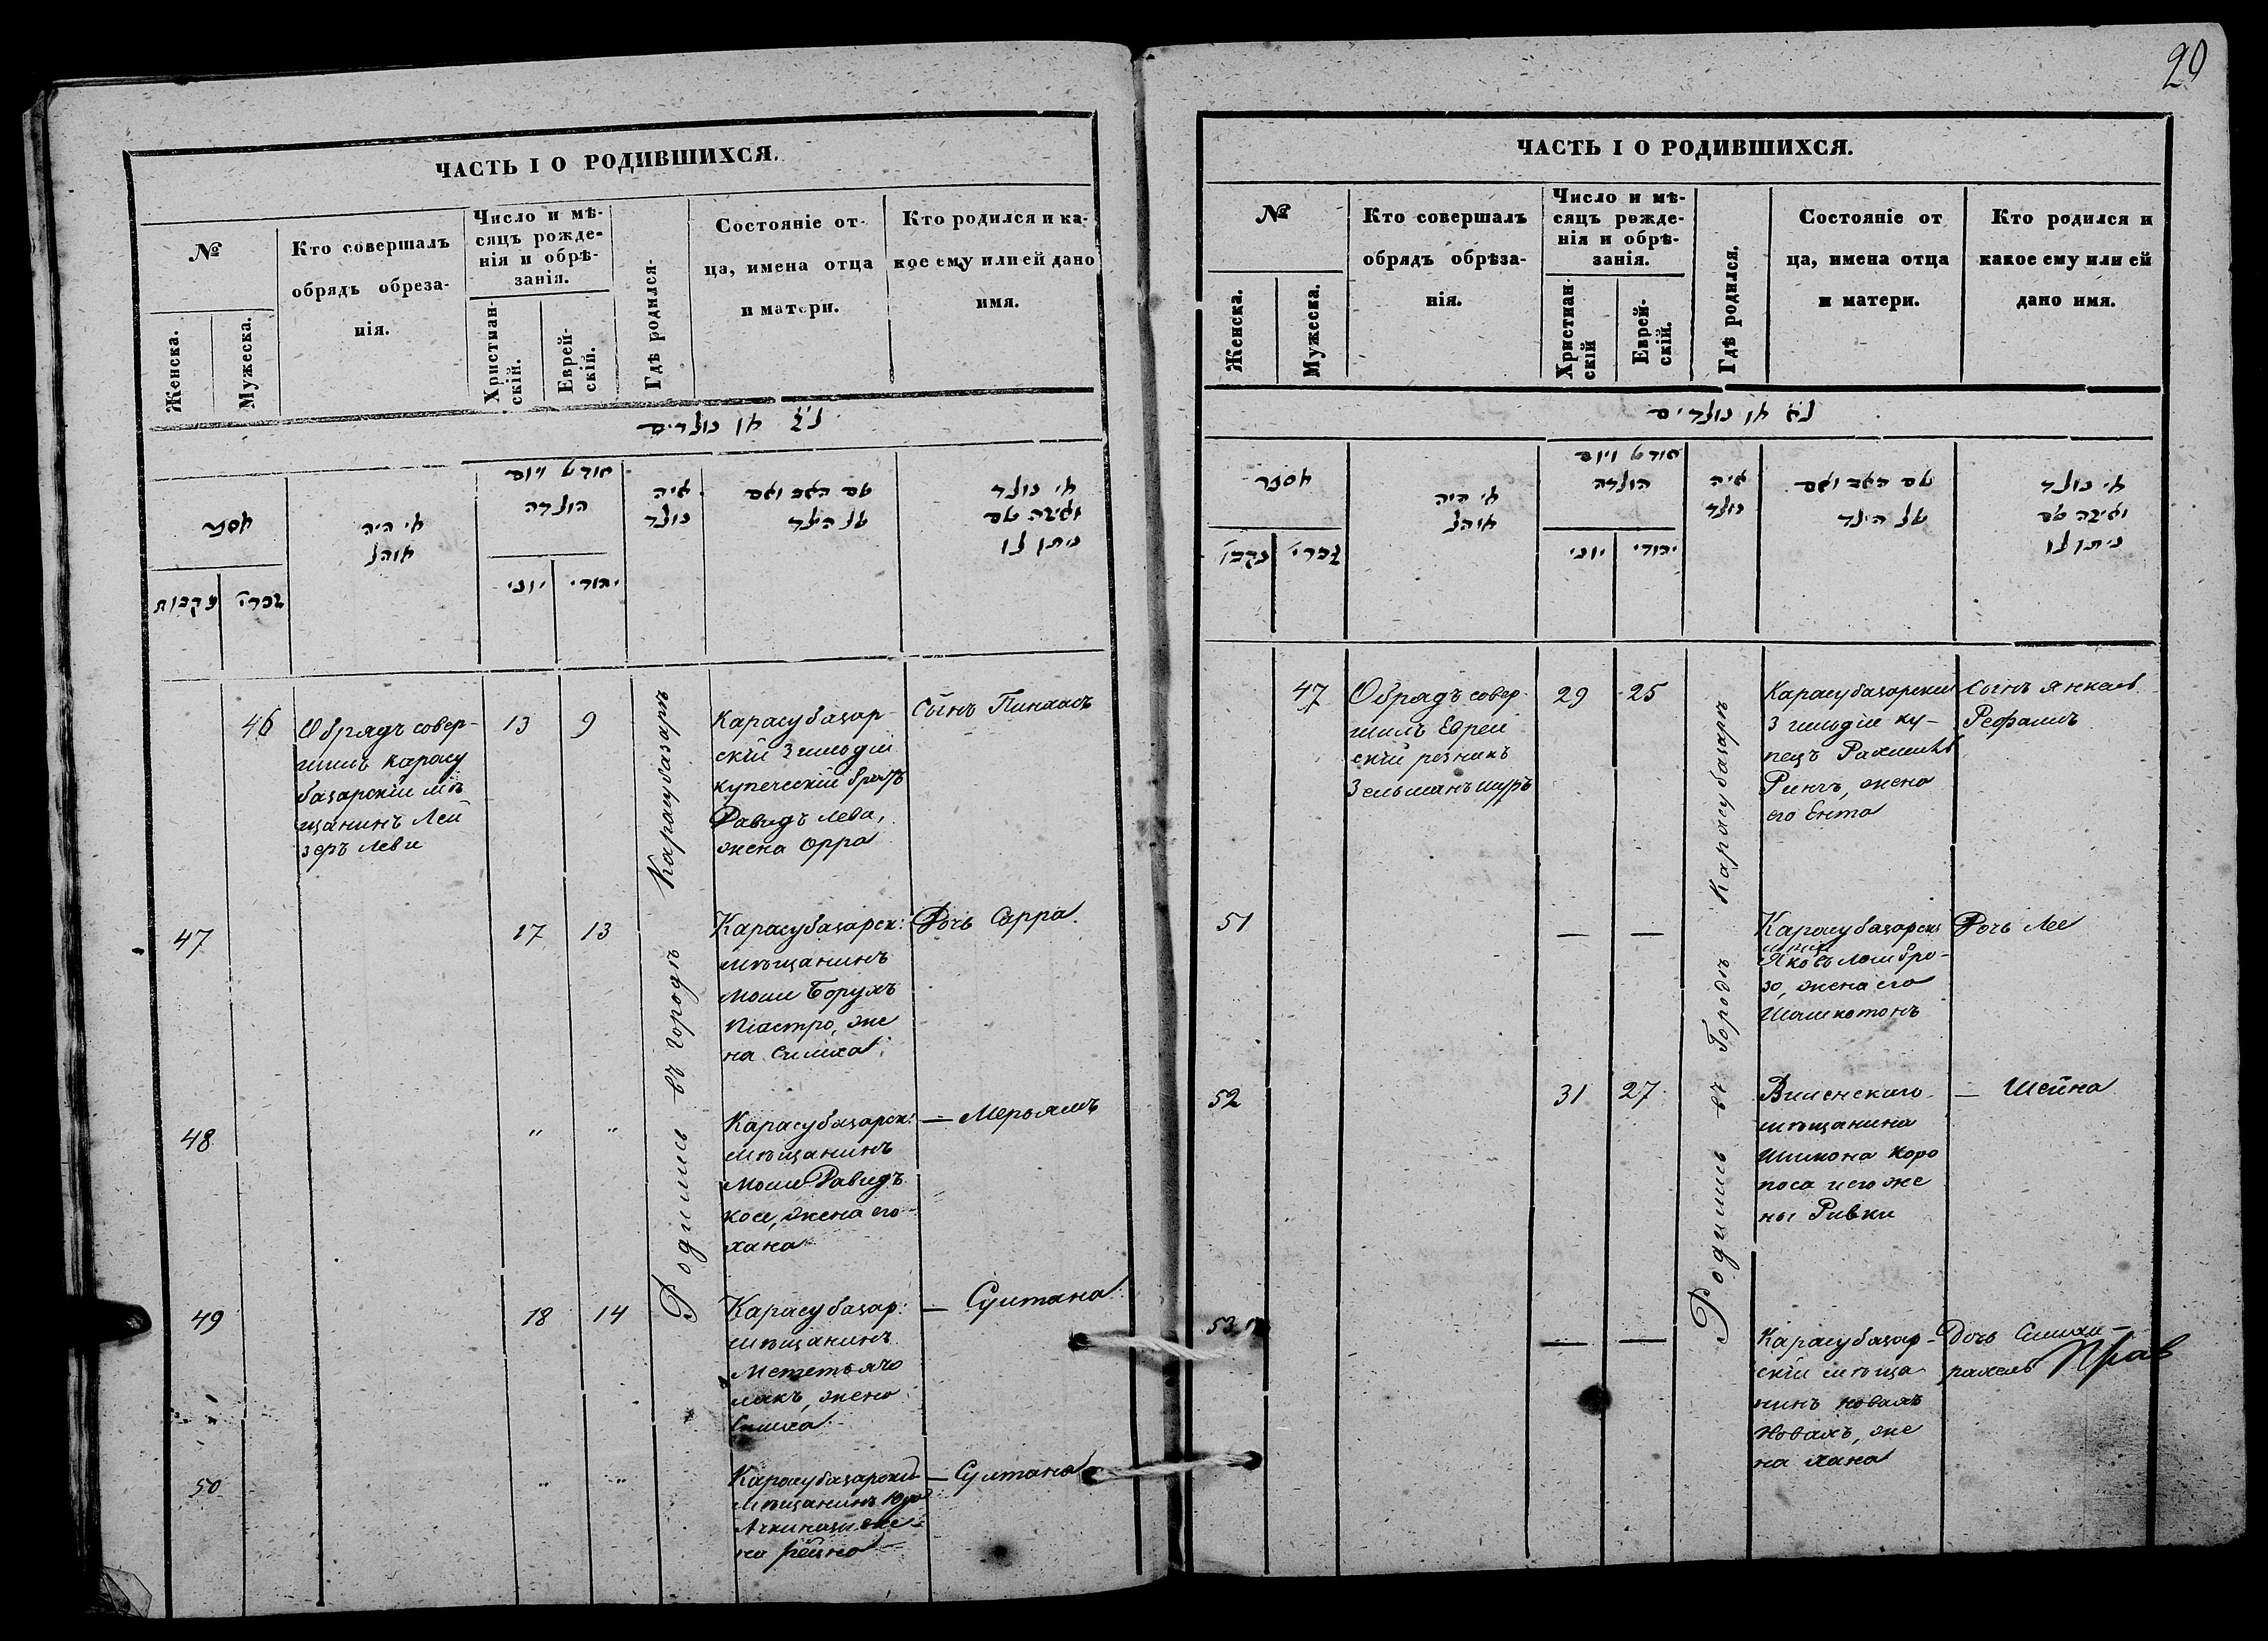 29
ЧАСТЬ I О РОДИВШИХСЯ.
№
Женска.
Мужеска.
Кто совершалъ
обрядъ обреза-
нія.
Число и мѣ-
сяцъ рожде-
нія и обрѣ-
занія.
Христиан-
скій.
Еврей-
скій.
Гдѣ родился.
Состояніе от-
ца, имена отца
и матери.
Кто родился и ка-
кое ему или ей дано
имя.
נולדים
מספר
נקבות
זכרי׳
מי היה
מוהל
חודש ויום
הולדה
יוני
יהודי
איה
נולד
שם האב ואם
של הילד
מי נולד
ואיזה שם
ניתן לו
46
Обрядъ совер-
шилъ карасу
базарскій мѣ
щанинъ Лей
зеръ Леви
13
9
Родились въ городѣ Карасубазаръ
Карасубазар
скій 3 гильдіи
купеческій братъ
Давидъ Лева,
жена Сорра
Сынъ Пинхасъ
47
17
13
Карасубазарск:
мѣщанинъ
Моше Борухъ
Піастро, же
на Симха
Дочь Сарра.
48
"
"
Карасубазарск:
мѣщанинъ
Моше Давидъ
Козе, жена его
Хана
— Мерьямъ
49
18
14
Карасубазар:
мѣщанинъ
жена
Симха
— Султана
50
"
"
Карасубазарскій
мѣщанинъ
Ачкинази же
на Рейна
— Султана
ЧАСТЬ I О РОДИВШИХСЯ.
№
Женска.
Мужеска.
Кто совершалъ
обрядъ обрѣза-
нія.
Число и мѣ-
сяцъ рожде-
нія и обрѣ-
занія.
Христиан-
скій
Еврей-
скій.
Гдѣ родился.
Состояніе от
ца, имена отца
и матери.
Кто родился и
какое ему или ей
дано имя.
נולדים
מספר
נקבו׳
זכרי׳
מי היה
מוהל
חודש ויום
הולדה
יוני
יהודי
איה
נולד
שם האב ואם
של הילד
מי נולד
ואיזה שם
ניתן לו
47
Обрядъ совер-
шилъ Еврей
скій рѣзникъ
Зельманъ Шуръ
29
25
Родились въ Городѣ Карасубазаръ
Карасубазарскій
3 гильдіи ку-
пецъ
Рингъ, жена
его Ента
Сынъ Янкель
Рефаилъ
51
—
—
Карасубазарск
мѣщ
Яковъ Ломбро-
зо, жена его
Дочь Лея
52
31
27
Виленскаго
мѣщанина
Шимона Коро
поса и его же
ны Ривки
— Шейна
53
—
—
Карасубазар-
скій мѣща
нинъ Новахъ
Новахъ, же
на Хана
Дочь Симха-
рахель